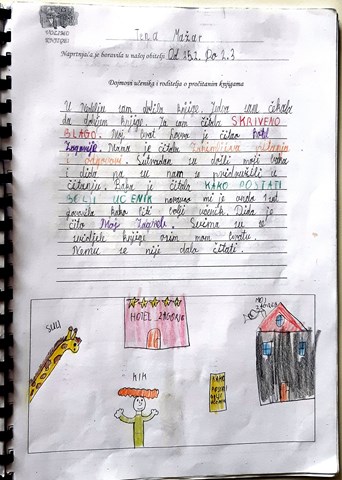 Naprtnjača je boravila u našoj obitelji: Od 25.2. Do 2.3
Dojmovi učenika i roditelja o pročitanim knjigama
U sam dobila knjige. Jedva sam čekala
da dobijem knjige. Ja sam čitala SKRIVENO
BLAGO. Moj brat je čitao hotel
Zagonija. Mama je čitala Zanimljiva pitanja
i odgovori. Sutradan su došli moji baka
i dida pa su nam se pridružili u
čitanju. Baka je čitala KAKO POSTATI
BOLJI UČENIK naravno mi je onda
govorila kako biti bolji učenik. Dida je
čito Moj Zagreb. Svima su se
svidjele knjige osim mom bratu.
Njemu se nije dalo čitati.
HOTEL ZAGONIJA
MOJ
ZAGREB
KIK
KAKO
POSTATI
BOLJI
UČENIK